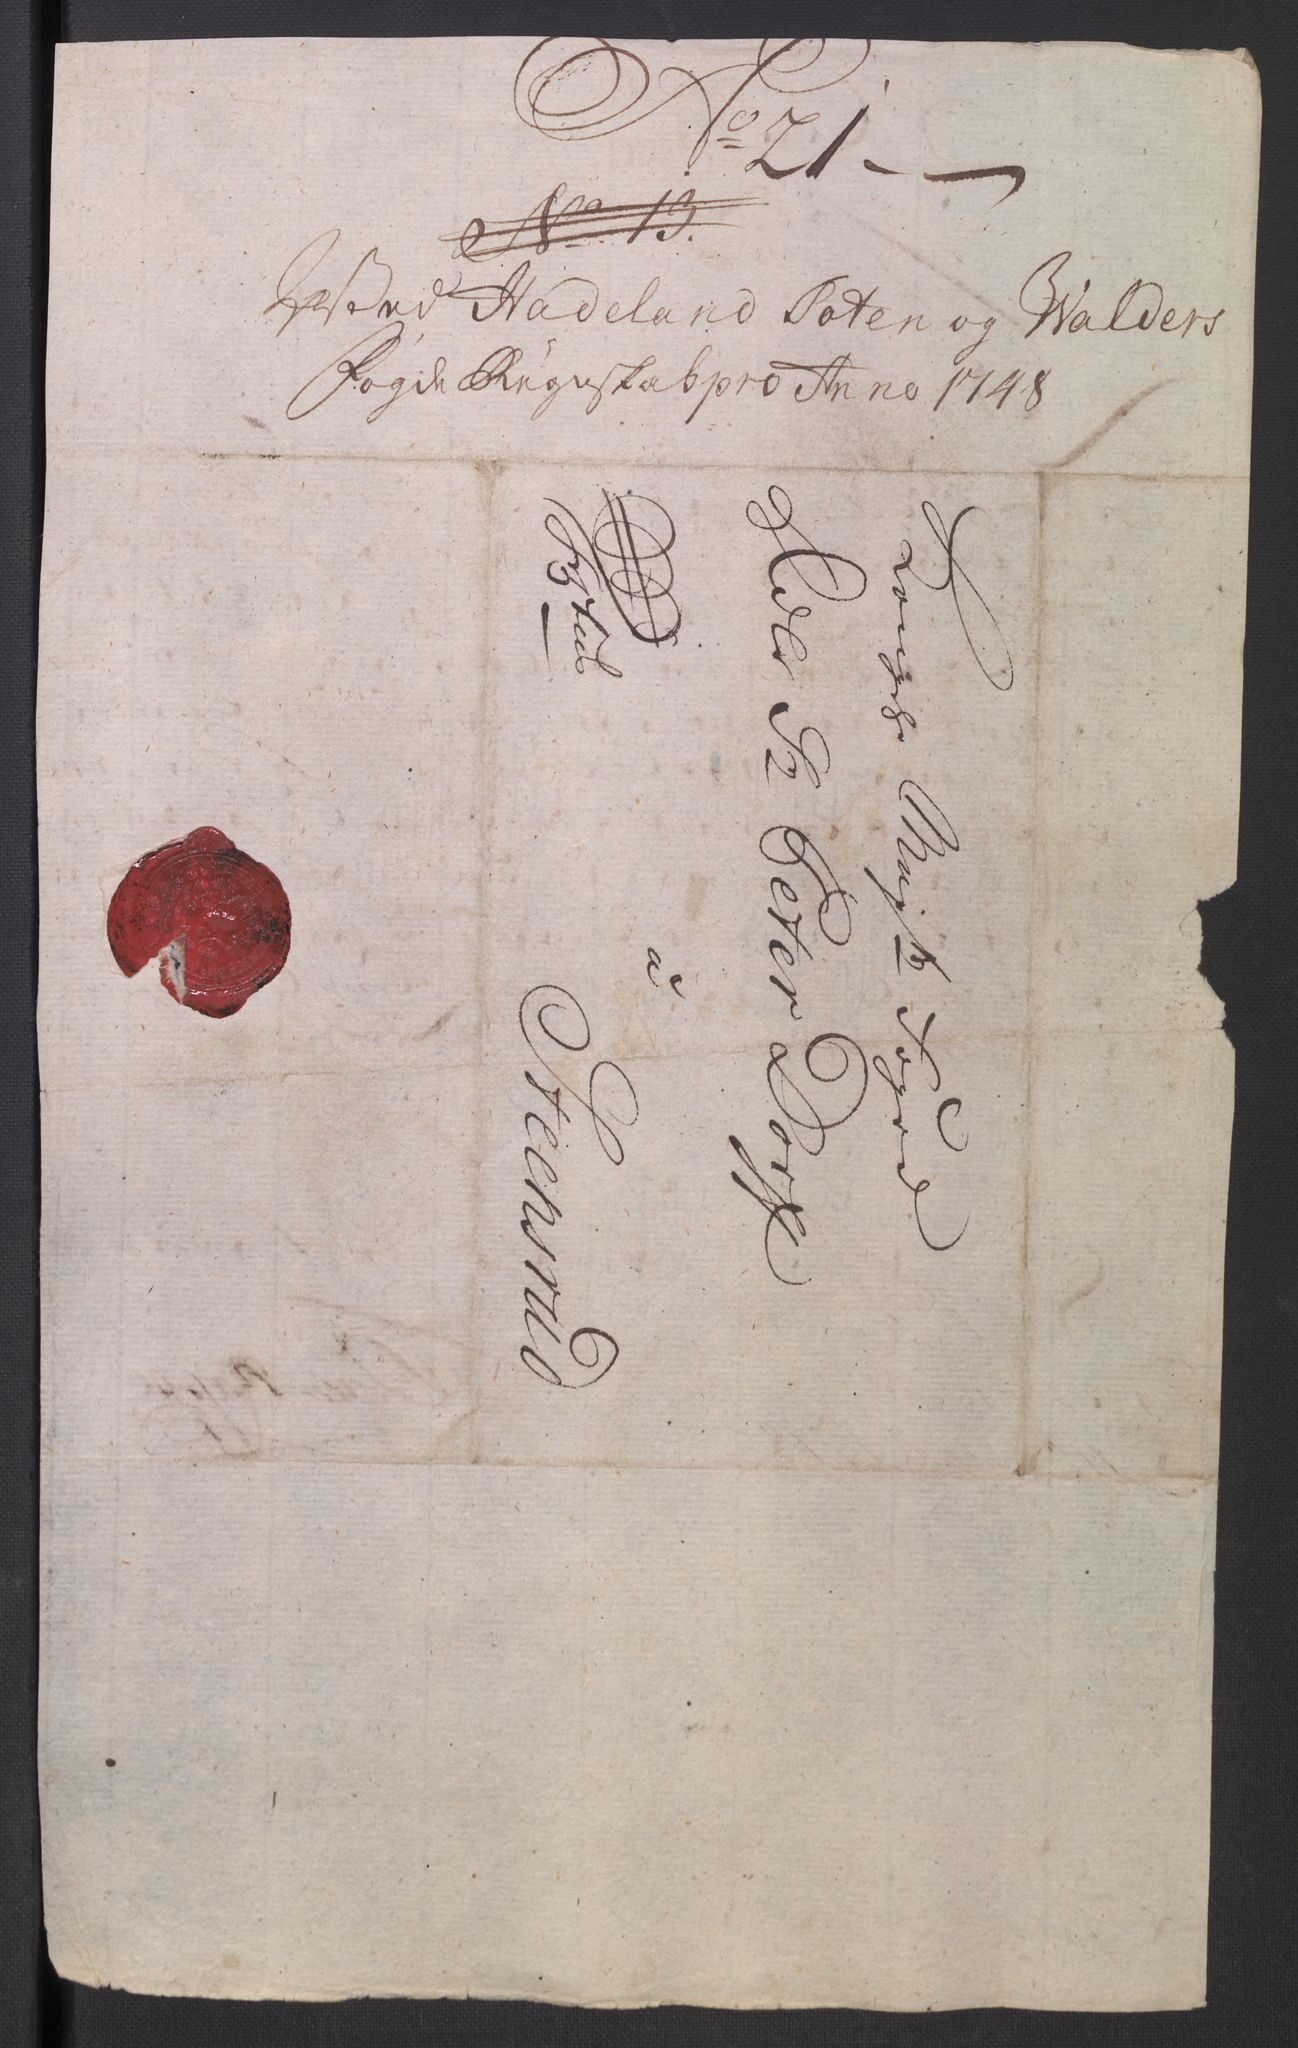 No 21
No 13.
Wed Hadeland Toten og Walders
Fogde Regnskab pro Anno 1748
Kongl Mayts Foged
Sr Peter Dorph
a
Steensrud